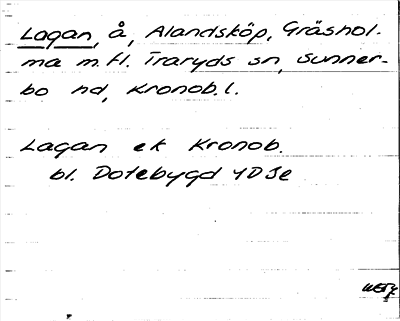 Lagan, å, Alandsköp, Gräshol-
ma m.fl. Traryds sn, Sunner-
bo hd, Kronob.l.
Lagan ek Kronob.
bl. Dotebygd 4D Se